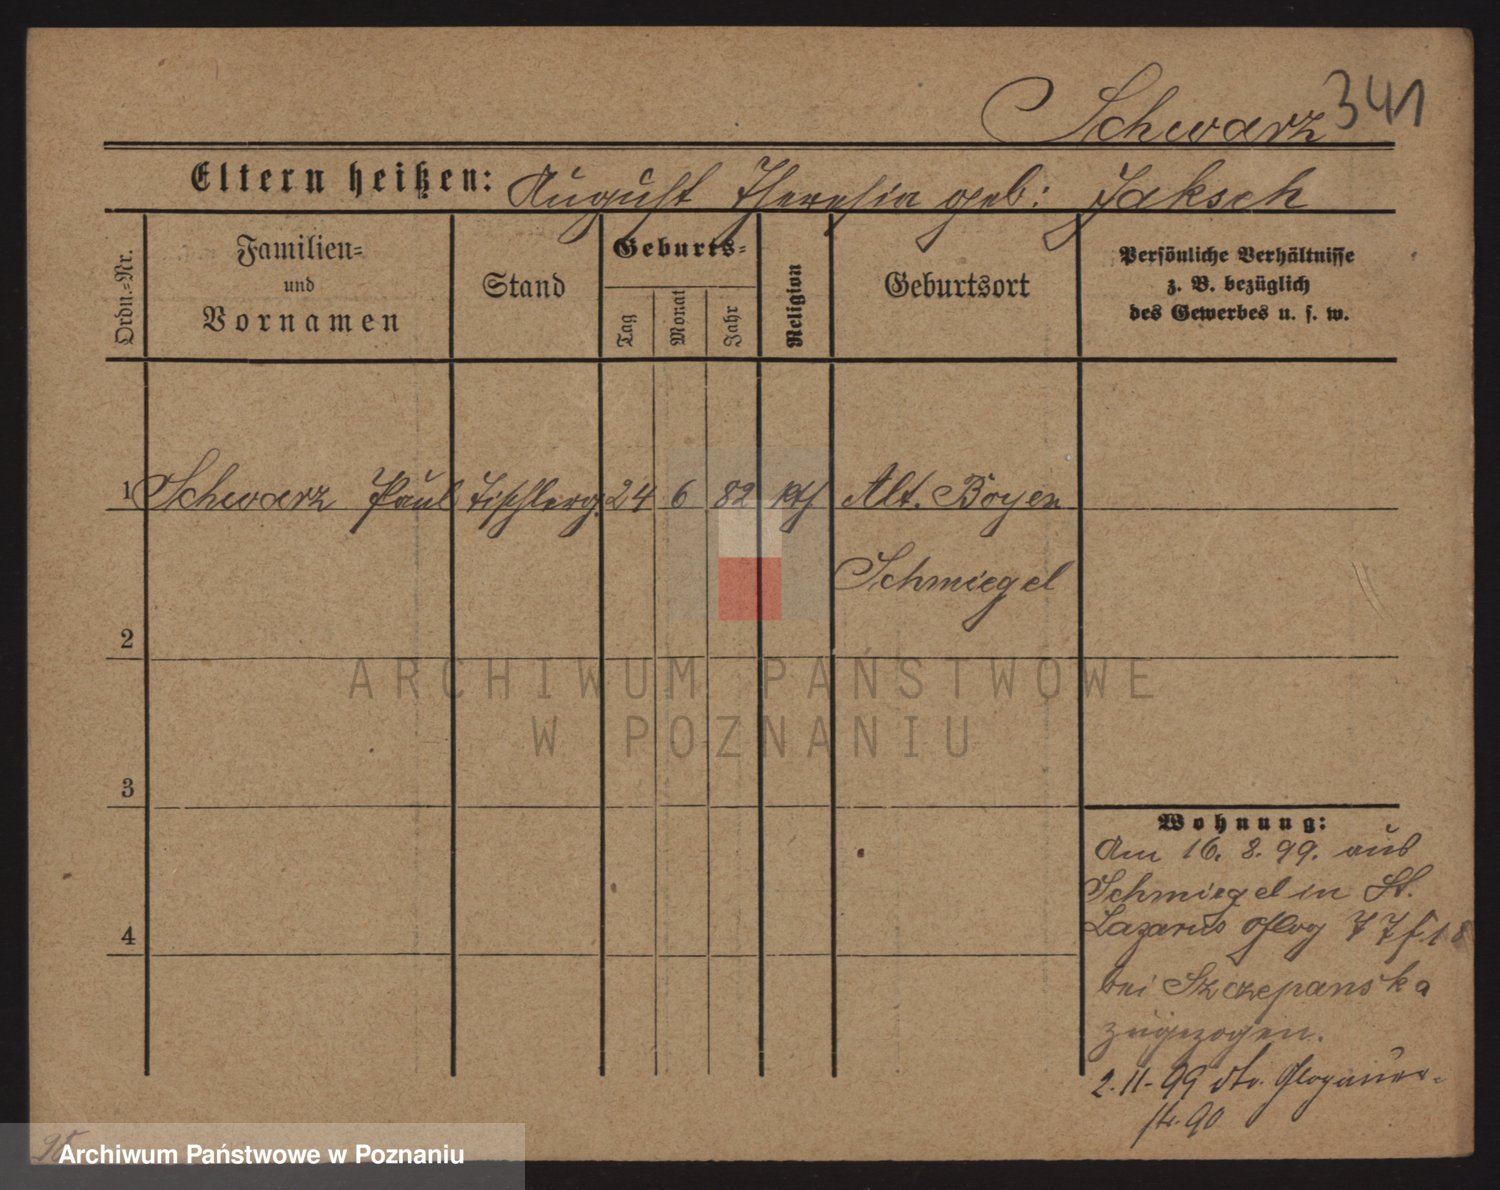 Schwarz 341
Eltern heißen: August Theresia geb: Jaksch
Ordn.-Nr.
Familien-
und
Vornamen
Stand
Geburts-
Tag
Monat
Jahr
Religion
Geburtsort
Persönliche Verhältnisse
z. B. bezüglich
des Gewerbes u. s. w.
1 Schwarz Paul Tischlerg. 24 6 82 kth Alt. Boyen
Schmiegel
2
3
4
Wohnung:
Am 16. 8. 99. aus
Schmiegel in St.
Lazarus Glog 77 f 18
bei Szczepanska
zugezogen.
2.11-99 Glogauer-
str. 90
95
ARCHIWUM PAŃSTWOWE
W POZNANIU
Archiwum Państwowe w Poznaniu